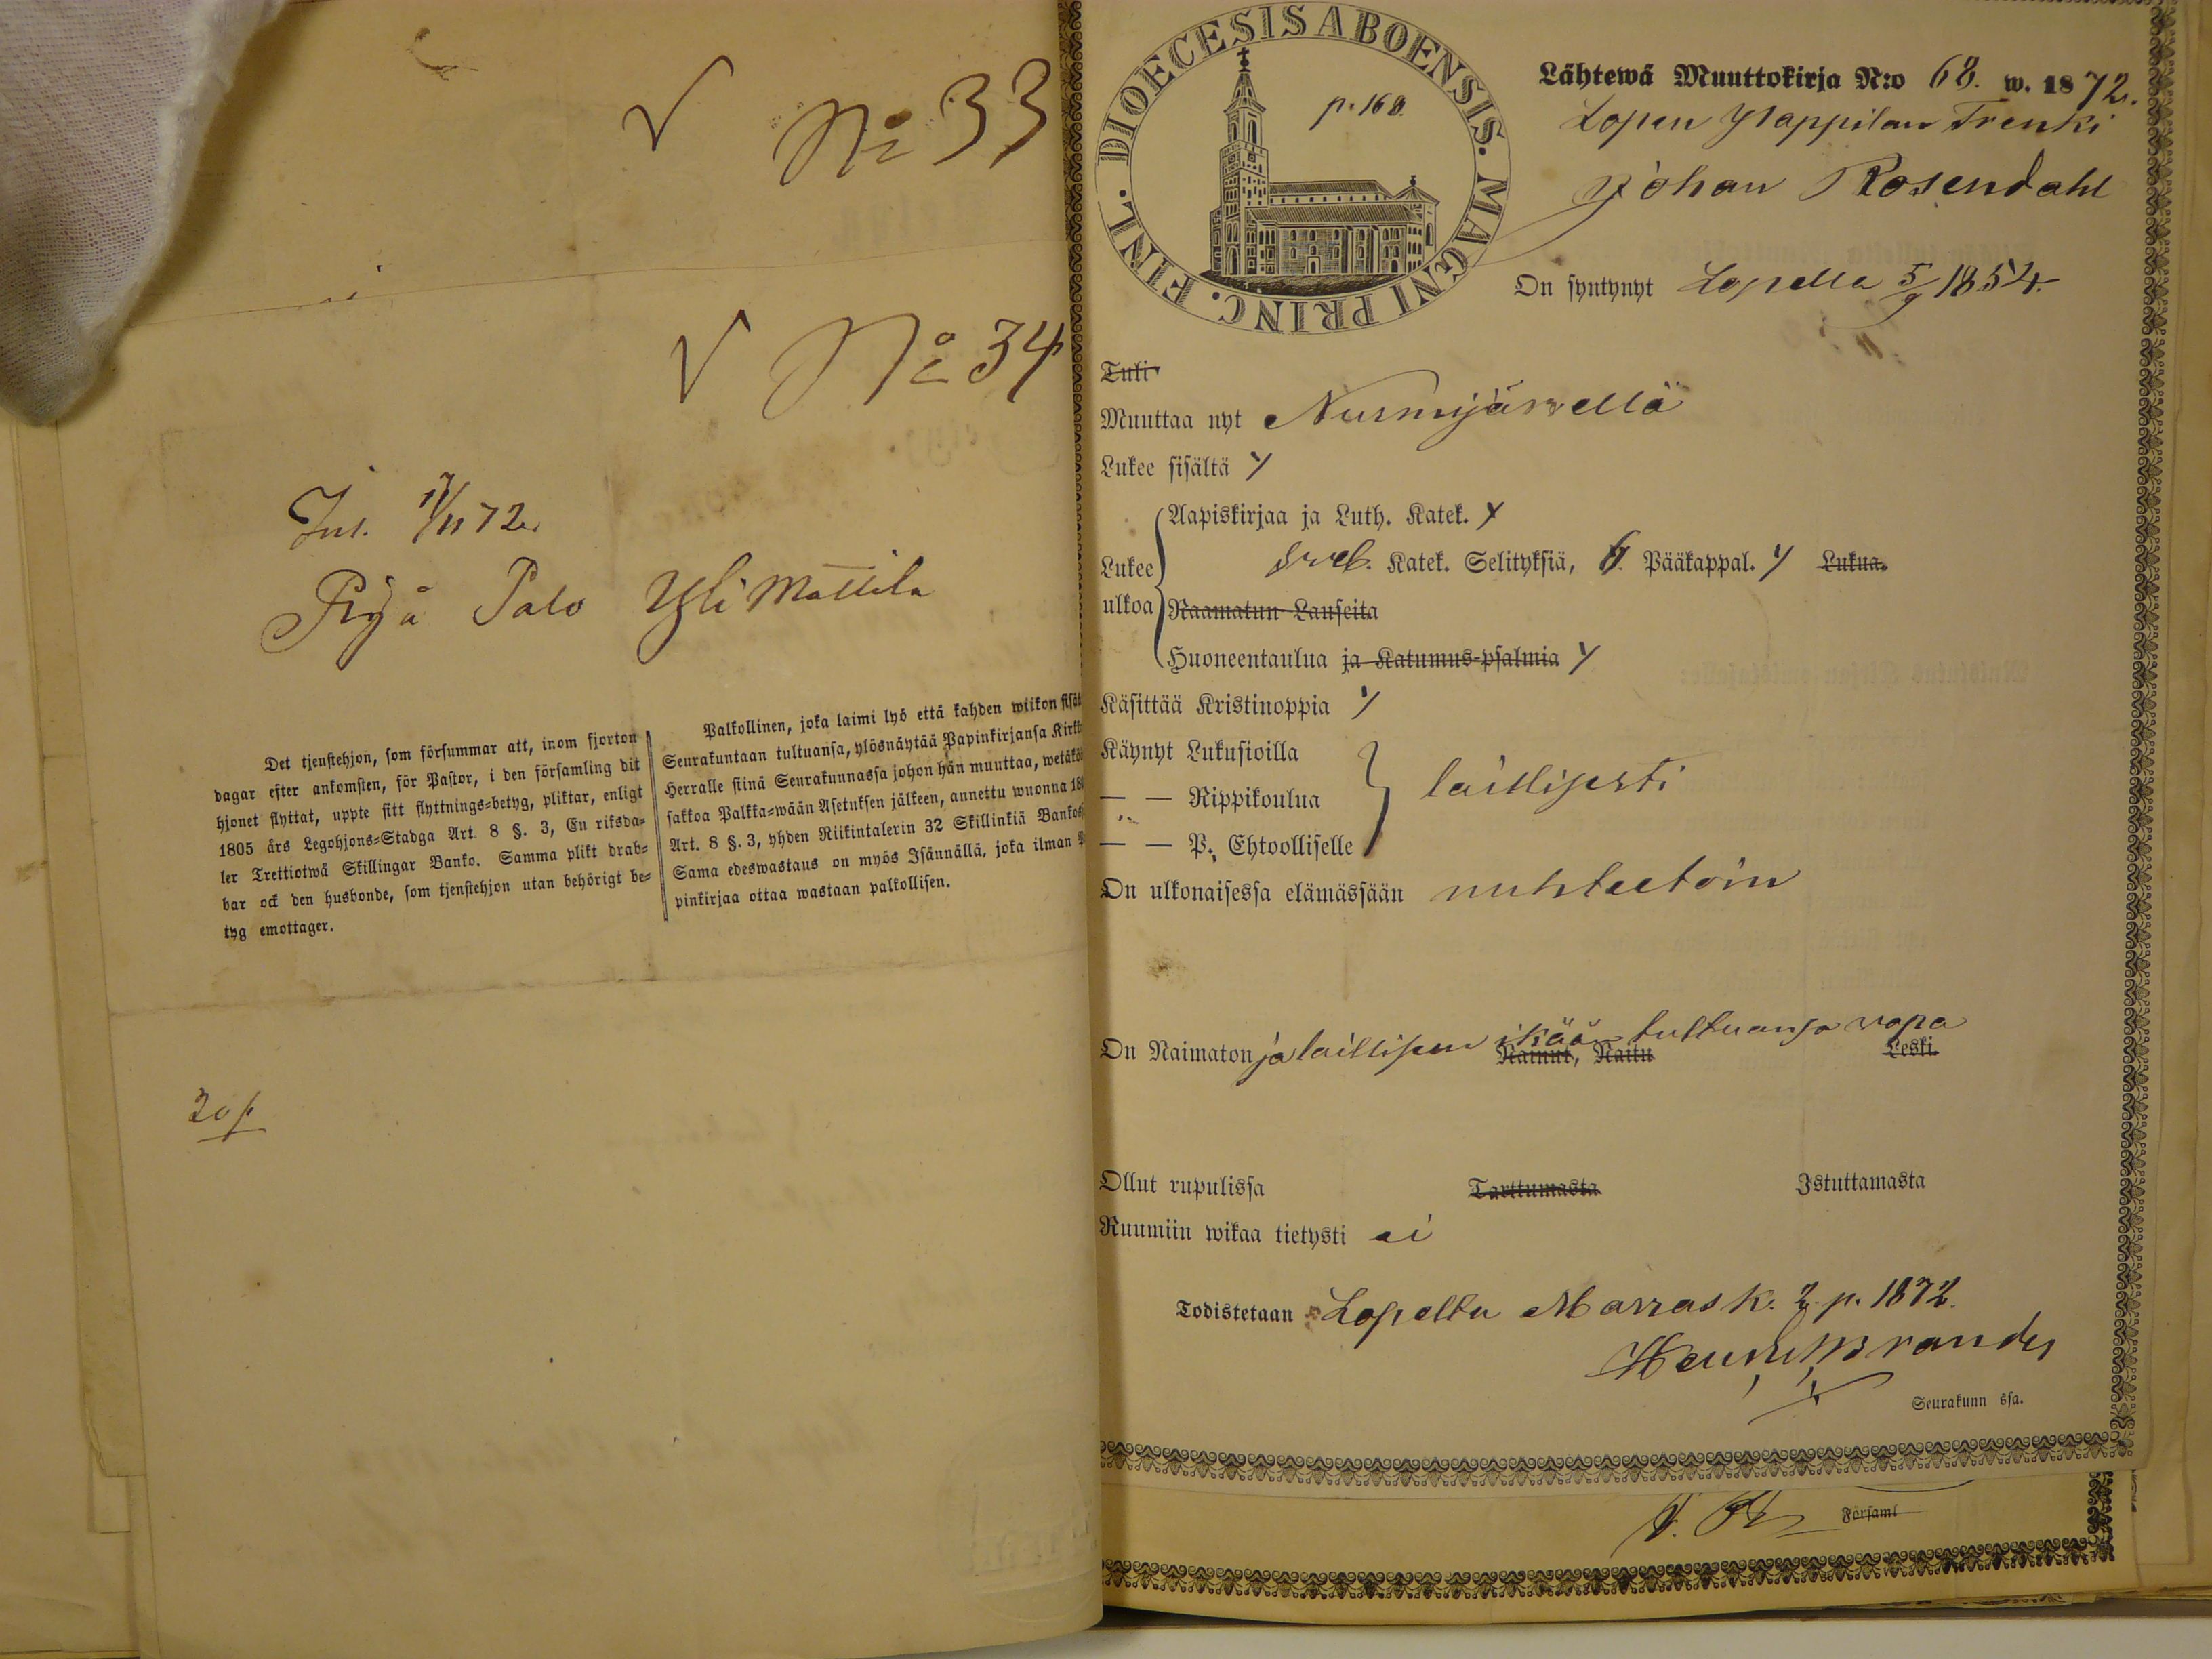 V No 33
V No 34
Ins. 17/11 72.
Röyä Palo Yli Mattila
Det tjenstehjon, som försummar att, inom fjorton
dagar efter ankomsten, för Pastor, i den församling dit
hjonet flyttat, uppte sitt flyttnings=betyg, pliktar, enligt
1805 års Legohjons=Stadga Art. 8 §. 3, En riksda=
ler Trettiotwå Skillingar Banko. Samma plikt drab=
bar ock den husbonde, som tjenstehjon utan behörigt be=
tyg emottager.
Palkollinen, joka laimi lyö että kahden wiikon sisä
Seurakuntaan tultuansa, ylösnäytää Papinkirjansa Kirk
Herralle siinä Seurakunnassa johon hän muuttaa, wetäkö
sakkoa Palkka=wään Asetuksen jälkeen, annettu wuonna 18
Art. 8 §. 3, yhden Riikintalerin 32 Skillinkiä Banko
Sama edeswastaus on myös Isännällä, joka ilman
pinkirjaa ottaa wastaan palkollisen.
20 p
FINL. DIOECESIS ABOENSIS. MAGNI PRINC.
p. 168.
Lähtewä Muuttokirja N:o 68. w. 1872.
Lopen Nappilan Trenki
Johan Rosendahl
On syntynyt Lopella 5/9 1854.
Tuli
Muuttaa nyt Nurmijärwellä
Lukee sisältä y
Lukee ulkoa
Aapiskirjaa ja Luth. Katek. y
Sveb. Katek. Selityksiä, 6 Pääkappal. y Lukua.
Raamatun Lauseita
Huoneentaulua ja Katumus=psalmia y
Käsittää Kristinoppia y
Käynyt Lukusioilla
— — Rippikoulua laillisesti
— — P. Ehtoolliselle
On ulkonaisessa elämässään nuhteetoin
On Naimaton ja laillisen ikään tultuansa vapa
Nainut, Naitu Leski
Ollut rupulissa Tarttumasta Istuttamasta
Ruumiin wikaa tietysti ei
Todistetaan Lopelta Marrask. 2 p. 1872.
Seurakunn ssa.
Församl